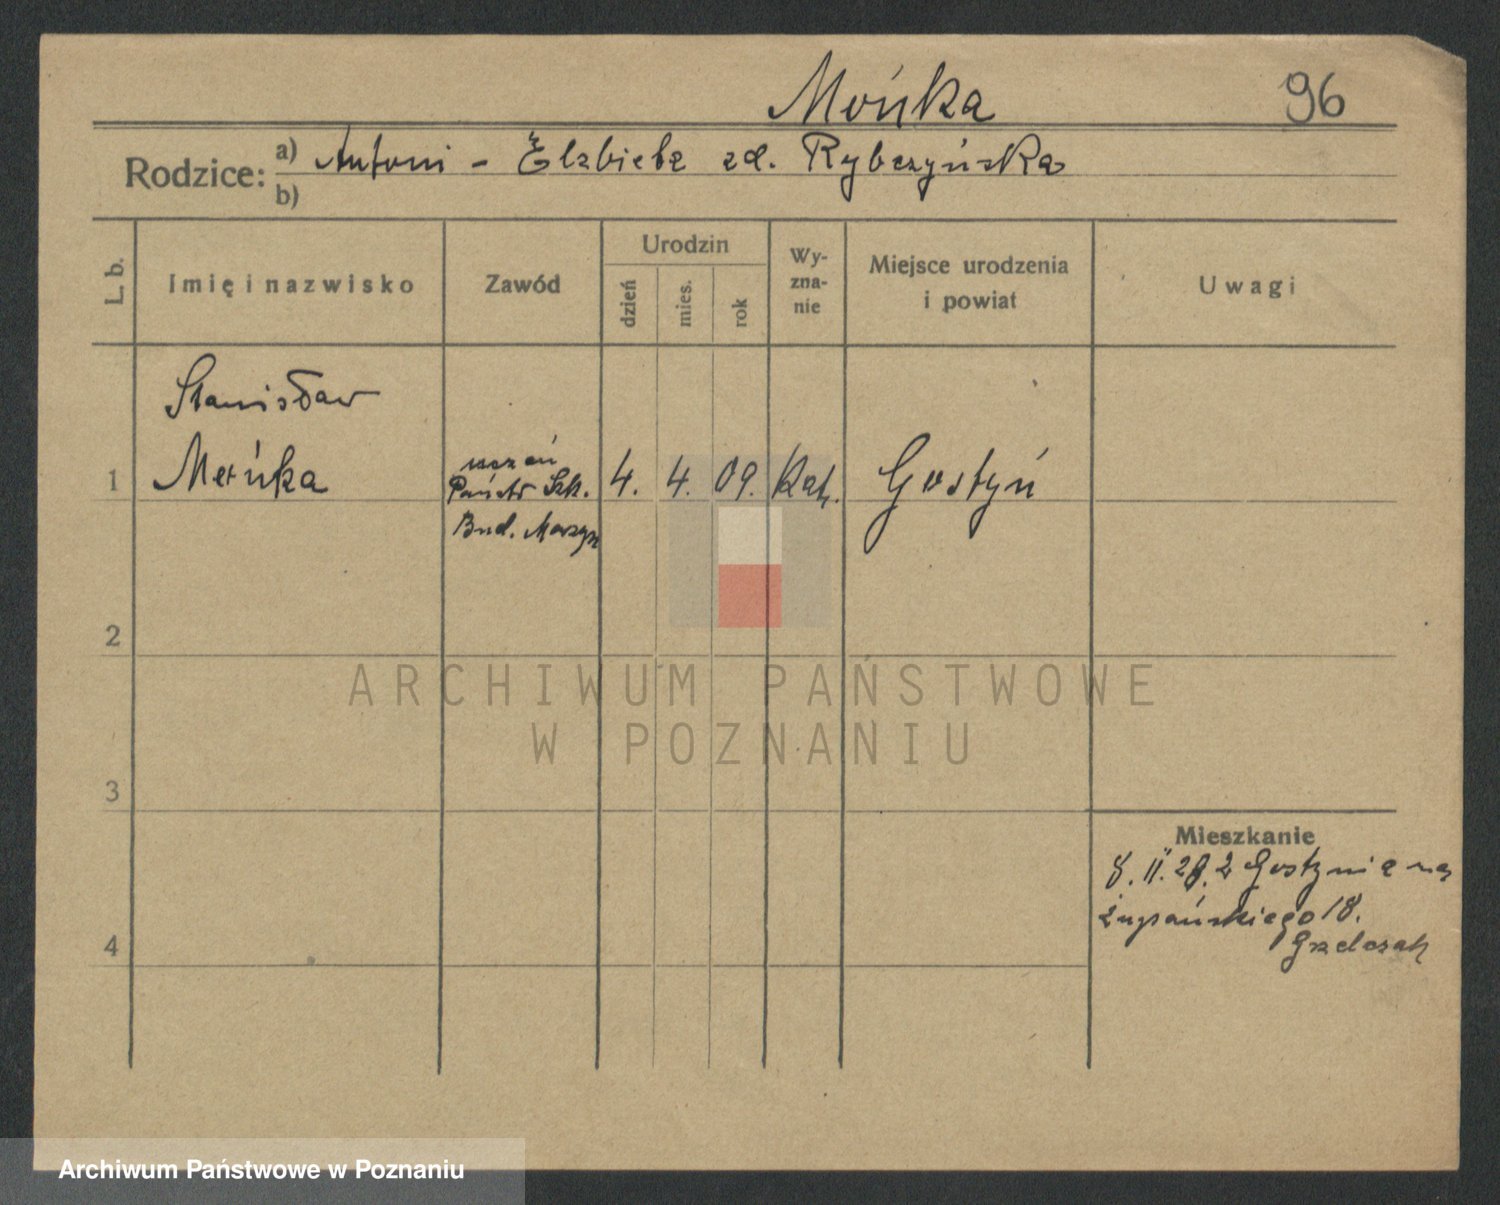 Mońka 96
Rodzice: a) Antoni - Elżbieta zd. Rybczyńska
b)
L. b. Imię i nazwisko Zawód Urodzin dzień mies. rok Wy-zna-nie Miejsce urodzenia i powiat Uwagi
Stanisław
1 Mońka uczeń 4. 4. 09. Kat. Gostyń
Państw Szk.
Bud. Maszyn
2
ARCHIWUM PAŃSTWOWE
W POZNANIU
3
Mieszkanie
8. II. 28. z Gostynia na
Żupańskiego 18.
Grzelczak
4
Archiwum Państwowe w Poznaniu